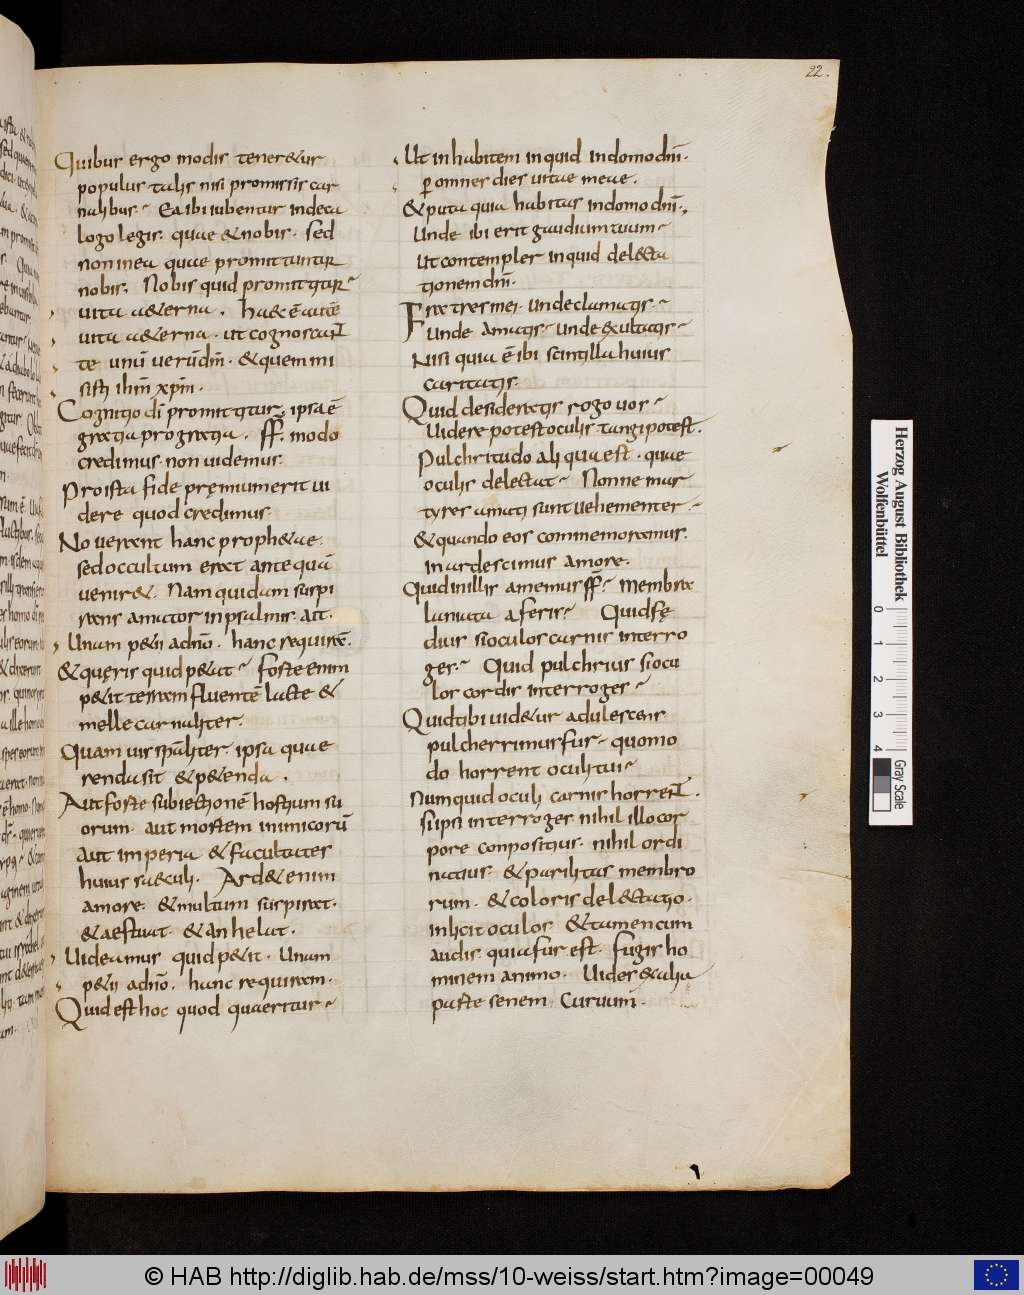 22.
Quibus ergo modis teneretur
populus talis nisi promissis car
nalibus. Ea ibi iubentur in deca
logo legis. quae & nobis. sed
non in ea quae promittuntur
nobis. Nobis quid promittitur
uita aeterna. haec ē autē
uita aeterna. ut cognoscant
te unū uerū dm̄. & quem mi
sisti ihm̄ xpm̄.
Cognitio dī promittitur. ipsa ē
gratia pro gratia. ff. modo
credimus non uidemus.
Pro ista fide pręmium erit ui
dere quod credimus.
Nouerant hanc prophetae.
sed occultum erat antequā
ueniret. Nam quidam suspi
rans amator in psalmis ait.
Unam petii a dn̄o. hanc requirā.
& quęris quid petat. forte enim
petit terram fluentē lacte &
melle carnaliter.
Quamuis sp̄aliter. ipsa quae
renda sit & petenda.
Aut forte subiectionē hostium su
orum. aut mortem inimicorū
aut imperia & facultates
huius saeculi. Ardet enim
amore. & multum suspirat.
& aestuat. & anhelat.
Uideamus quid petit. Unam
petii a dn̄o. hanc requiram.
Quid est hoc quod quaeritur
Ut inhabitem inquid in domo dn̄i.
p̱ omnes dies uitae meae.
& puta quia habitas in domo dn̄i.
Unde ibi erit gaudium tuum
ut contempler inquid delecta
tionem dn̄i.
Fratres mei. unde clamatis.
Unde amatis unde exultatis
Nisi quia ē ibi scintilla huius
caritatis.
Quid desideratis rogo uos
Uidere potest oculis tangi potest.
Pulchritudo aliqua est. quae
oculis delectat. Nonne mar
tyres amati sunt uehementer.
& quando eos commemoramus.
inardescimus amore.
Quid in illis amemus ff. membra
laniata a feris. Quid fę
dius si oculos carnis interro
ges. Quid pulchrius si ocu
los cordis interroges
Quid tibi uidetur adulescens
pulcherrimus fur. quomo
do horrent oculi tui
Numquid oculi carnis horrent.
Si ipsi interroges nihil illo cor
pore conpositius. nihil ordi
natius. & parilitas membro
rum. & coloris delectatio.
inlicit oculos & tamen cum
audis quia fur est. fugis ho
minem animo. Uides ex alia
parte senem. Curuum.
Herzog August Bibliothek
Wolfenbüttel
0 1 2 3 4
Gray Scale
© HAB http://diglib.hab.de/mss/10-weiss/start.htm?image=00049